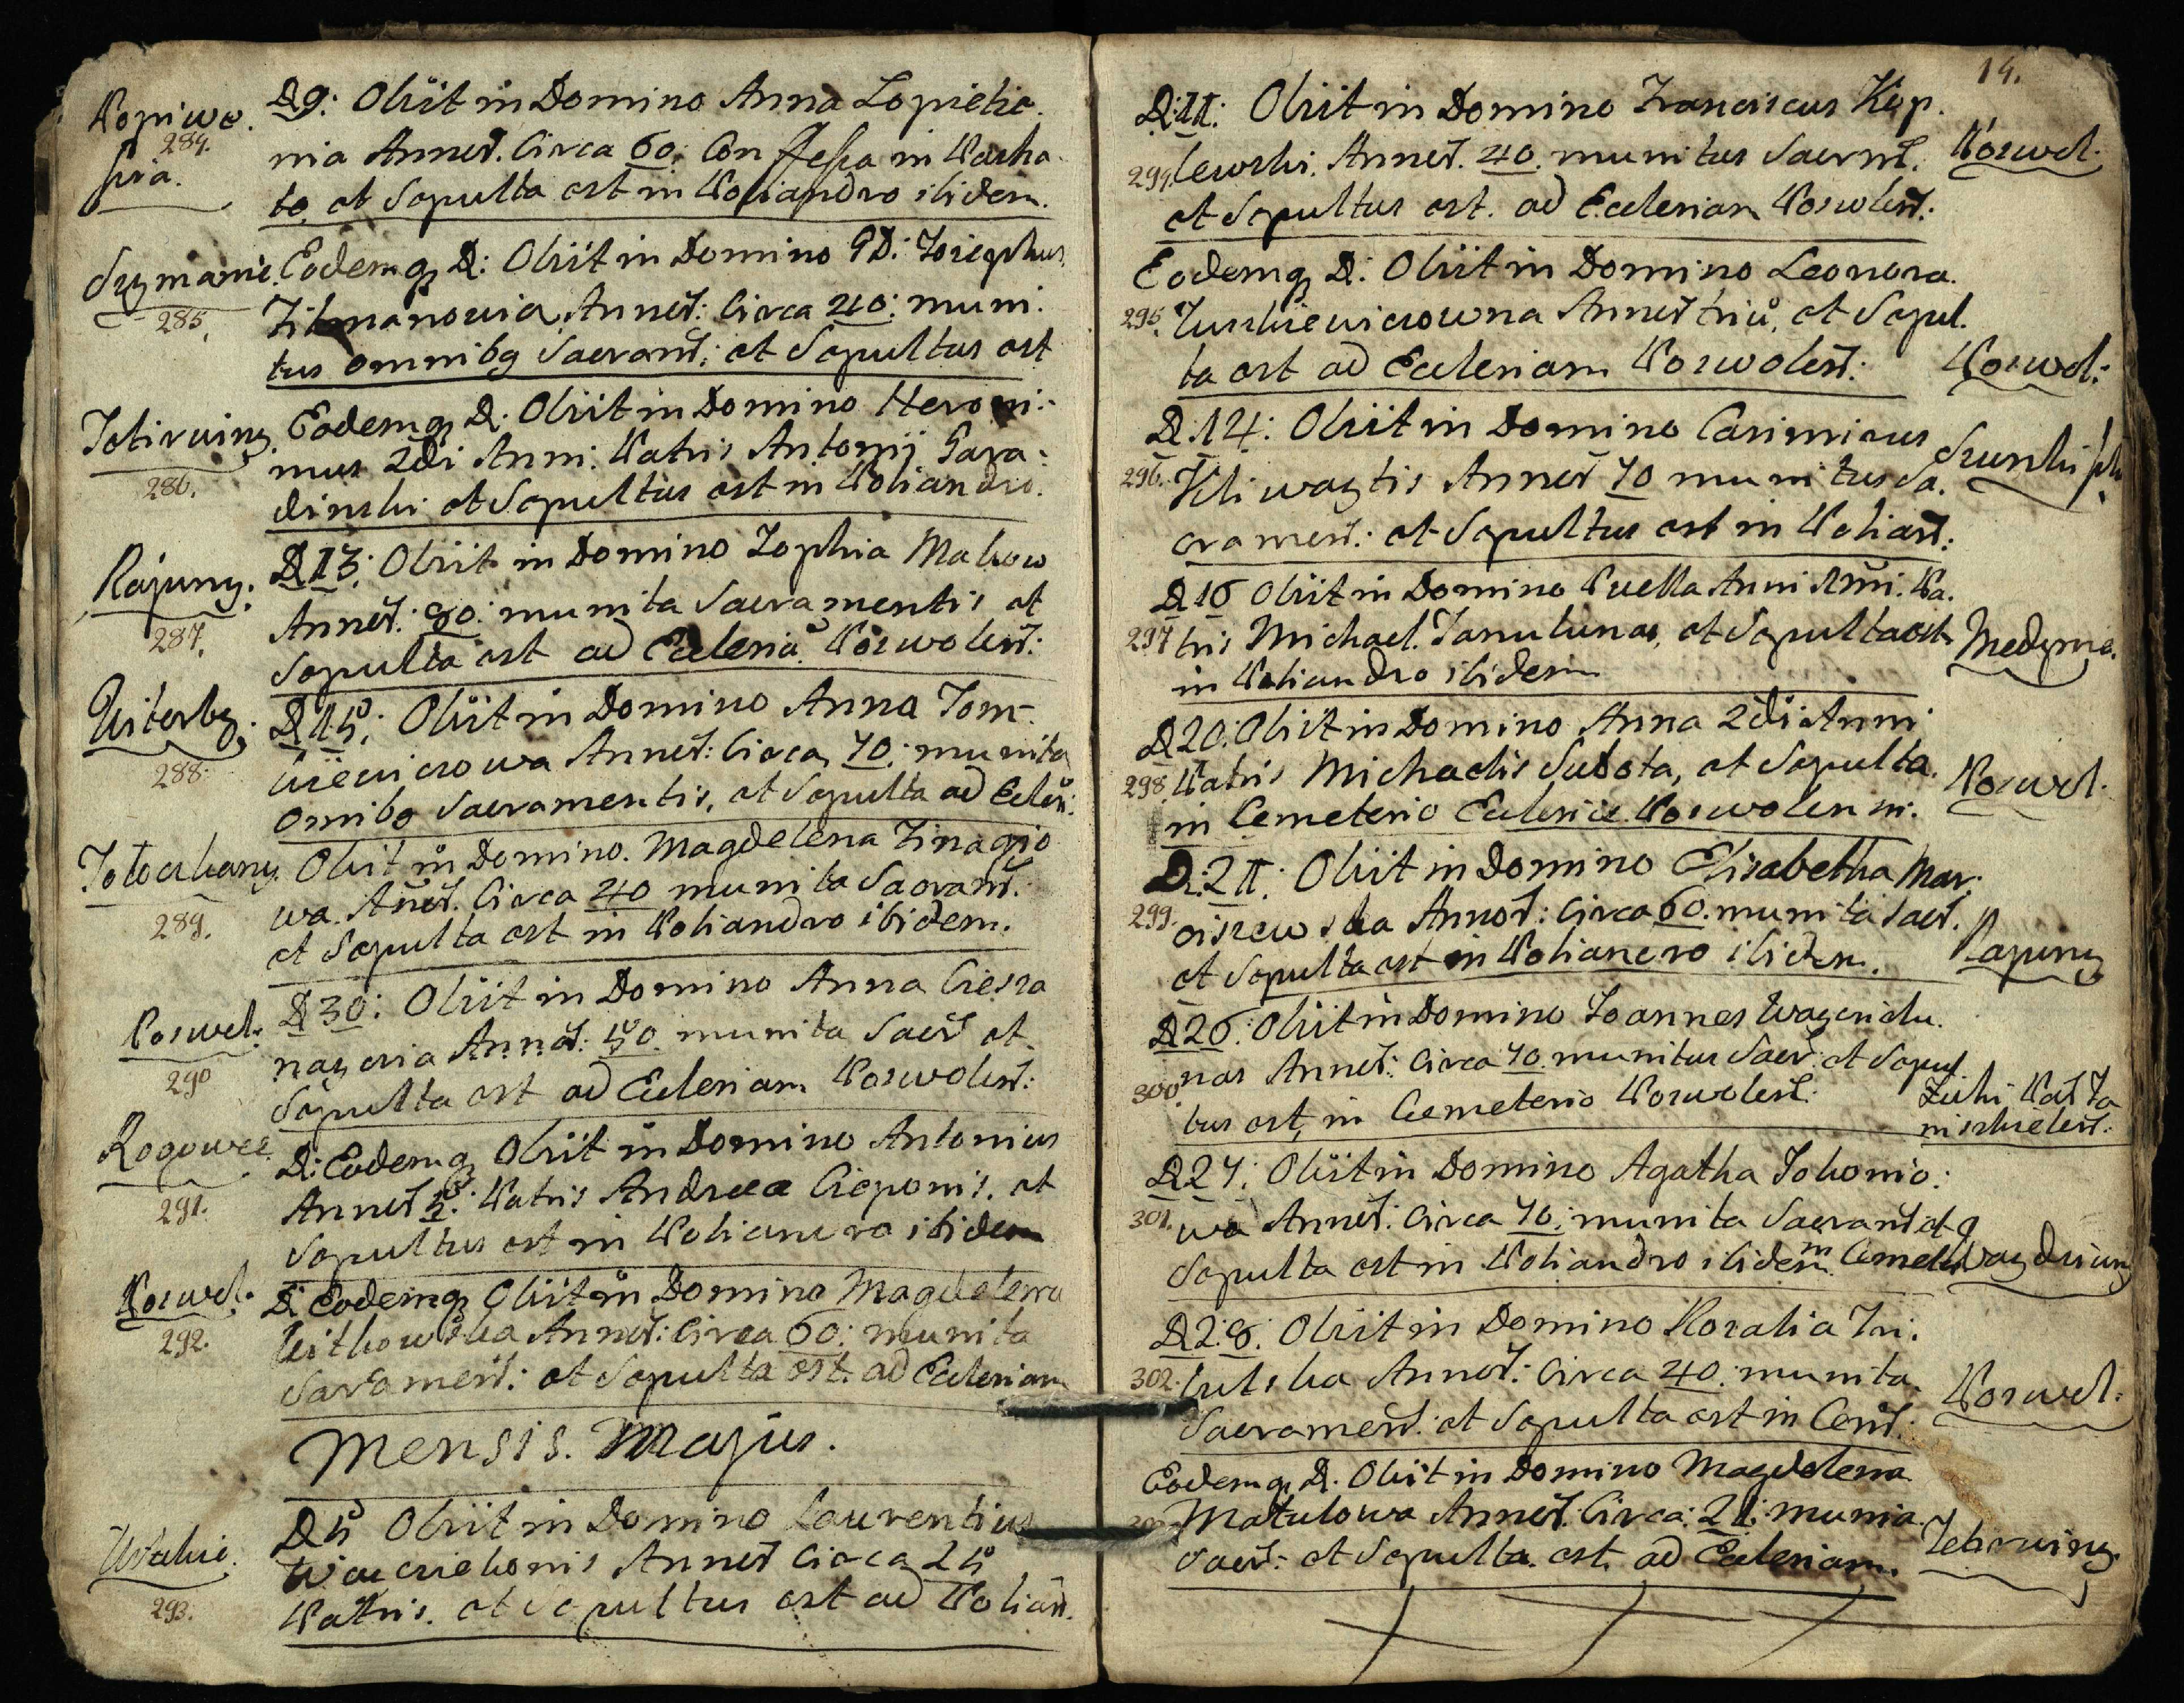 Popiwe.
284.
sria.
D 9: Obiit in Domino Anna Lopieÿko
nia Annor. Circa 60. Confessa in Pascha
te, et Sepulta est in Poliandro ibidem.
Szymanie.
285.
Eodemq D: Obiit in Domino GD: Josephus
Zilmanowicz Annor: Circa 40: muni.
tus omnibq Sacrament: et Sepultus est
286.
Eodemq D: Obiit in Domino Heroni:
mus 2di Anni. Patris Antonij Gara:
dinski et Sepultus est in Poliandro.
Rajuny.
287.
D 13: Obiit in Domino Zophia Makow
Annor: 80: munita Sacramentis et
Sepulta est ad Eclesia Poswolen:
Uiterby.
288.
D 15: Obiit in Domino Anna Tom-
kiewiczowa Annor: Circa 70: munita
omibq Sacramentis, et Sepulta ad Eclen:
289.
Obiit in Domino. Magdelena
wa. Anor. Circa 40 munita Sacrament:
et Sepulta est in Poliandro ibidem.
Poswol:
290
D 30: Obiit in Domino Anna Ciesza
Annor: 50. munita Sacr et
Sepulta est ad Eclesiam Poswolen:
Rogowce.
291.
D: Eodemq Obiit in Domino Antonius
Annor 5: Patris Andreæ Cieponis. et
Sepultus est in Poliandro ibidem
Poswol:
292.
D: Eodemq Obiit in Domino Magdelena
Witkowska Annor: Circa 60: munita
Sacrament: et Sepulta est ad Eclesiam
Mensis. Majus.
293.
D 5 Obiit in Domino Laurentius
Annor Circa 25
Patris. et Sepultus est ad Polian.
14.
D: 11: Obiit in Domino Franciscus Kop.
294. lewski. Annor. 40. munitus Sacrament.
Poswol:
et Sepultus est. ad Eclesiam Poswolen:
Eodemq D: Obiit in Domino Leonora.
295. Juszkiewiczowna Annor triu, et Sepul.
ta est ad Eclesiam Poswolen: Poswol:
D. 14: Obiit in Domino Casimirus
296. Kliwaytis Annor 70 munitus Sa.
crament: et Sepultus est in Polian:
D 16 Obiit in Domino Puella Anni Pa.
297 tris Michael. Janulunas, et Sepulta est
in Poliandro ibidem
D 20: Obiit in Domino Anna 2di Anni
298. Patris Michaelis Subota, et Sepulta.
Poswol.
in Cemeterio Eclesiæ Poswolensi.
D: 21: Obiit in Domino Elisabetha Mar.
299. ciszewska Annor: Circa 60. munita Sacr.
et Sepulta est in Poliandro ibidem.
Rapuny
D 26: Obiit in Domino Joannes
300. nas Annor: Circa 70. munitus Sacr: et Sepul
tus est, in Cemeterio Poswolen:
D 27: Obiit in Domino Agatha Jokonio:
301. wa Annor: Circa 70: munita Sacrament et
Sepulta est in Poliandro ibidem
D 28: Obiit in Domino Rozalia
302. Annor: Circa 40: munita
Poswol:
Sacrament: et Sepulta est in Cem:
Eodemq D. Obiit in Domino Magdelena
Matulowa Annor: Circa: 21: munia
Sacr: et Sepulta. est. ad Eclesiam.